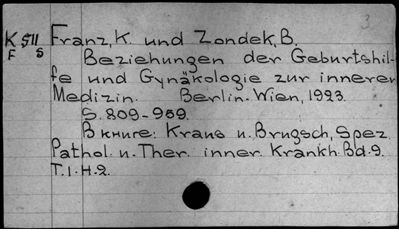 3
K 511 Franz, K. und Zondek, B.
F S
Beziehungen der Geburtshil-
fe und Gynäkologie zur inneren
Medizin. Berlin-Wien, 1923.
S. 809-959.
В книге: Kraus u. Brugsch, Spez.
Pathol. u. Ther. inner. Krankh. Bd. 9.
T. 1. H. 2.